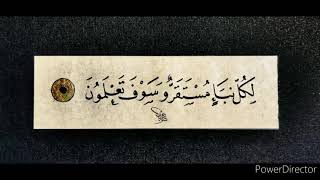 لِكُلِّ نَبَإٍ مُسْتَقَرٌّ وَسَوْفَ تَعْلَمُونَ
PowerDirector